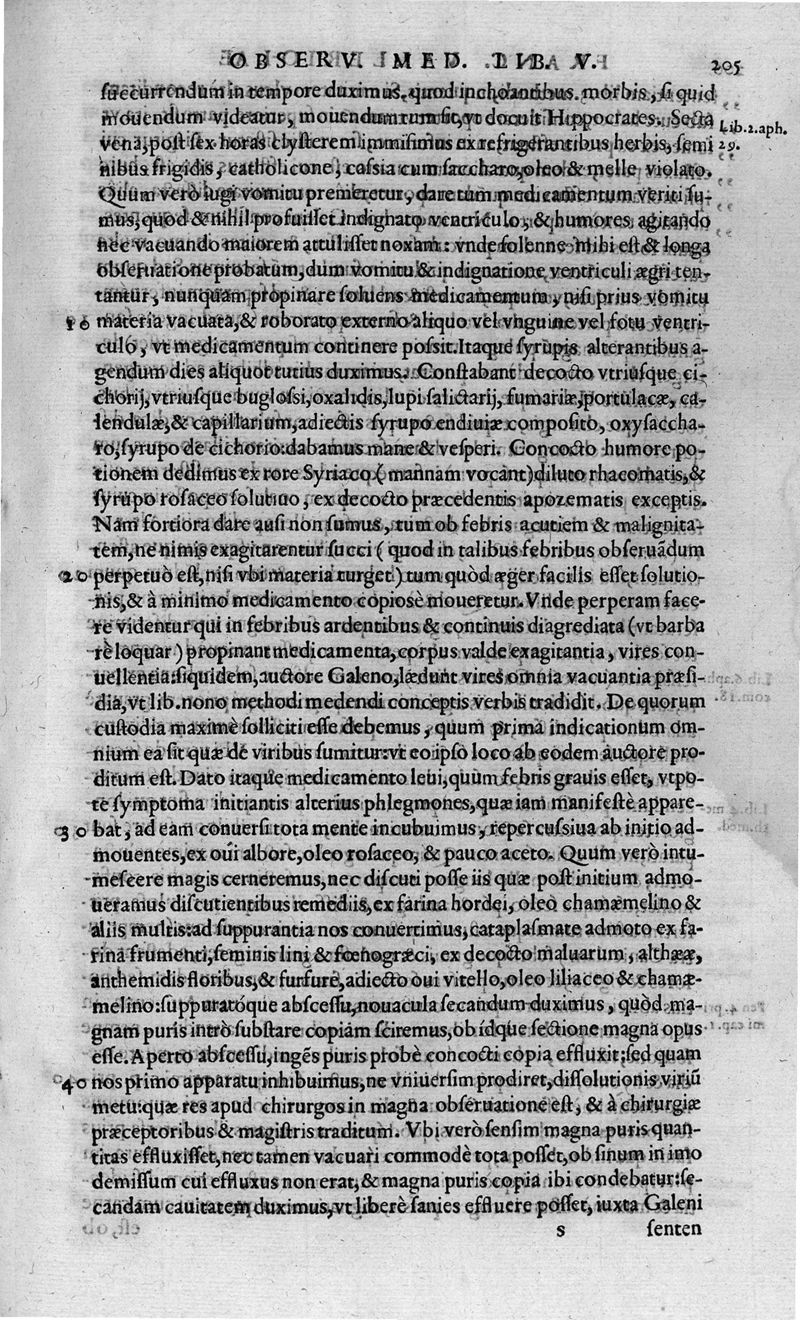 OBSERV. MED. LIB. V. 205
succurrendum in tempore duximus, quod inchoantibus morbis, si quid
mouendum videatur, mouendum tum sit, vt docuit Hippocrates. Secta
Lib. 2. aph. 29.
vena, post sex horas clysterem immisimus ex refrigerantibus herbis, semi
nibus frigidis, catholicone, cassia cum saccharo, oleo & melle violato.
Quùm verò iugi vomitu premeretur, dare tum medicamentum veriti su-
mus, quod & nihil profuisset indignato ventriculo, & humores agitando
nec vacuando maiorem attulisset noxam: vnde solenne mihi est & longa
obseruatione probatum, dum vomitu & indignatione ventriculi ægri ten-
tantur, nunquam propinare soluens medicamentum, nisi prius vomitu
10 materia vacuata, & roborato externo aliquo vel vnguine vel fotu ventri-
culo, vt medicamentum continere possit. Itaque syrupis alterantibus a-
gendum dies aliquot tutius duximus. Constabant decocto vtriusque ci-
chorij, vtriusque buglossi, oxalidis, lupi salictarij, fumariæ, portulacæ, ca-
lendulæ, & capillarium, adiectis syrupo endiuiæ composito, oxysaccha-
ro, syrupo de cichorio: dabamus mane & vesperi. Concocto humore po-
tionem dedimus ex rore Syriaco (mannam vocant) diluto rhacomatis, &
syrupo rosaceo solutiuo, ex decocto præcedentis apozematis exceptis.
Nam fortiora dare ausi non sumus, tum ob febris acutiem & malignita-
tem, ne nimis exagitarentur succi (quod in talibus febribus obseruãdum
20 perpetuò est, nisi vbi materia turget) tum quòd æger facilis esset solutio-
nis, & à minimo medicamento copiosè moueretur. Vnde perperam face-
re videntur qui in febribus ardentibus & continuis diagrediata (vt barba
rè loquar) propinant medicamenta, corpus valde exagitantia, vires con-
uellentia: siquidem, auctore Galeno, lædunt vires omnia vacuantia præsi-
dia, vt lib. nono methodi medendi conceptis verbis tradidit. De quorum
custodia maximè solliciti esse debemus, quum prima indicationum om-
nium ea sit quæ de viribus sumitur: vt eo ipso loco ab eodem auctore pro-
ditum est. Dato itaque medicamento leui, quùm febris grauis esset, vtpo-
te symptoma initiantis alterius phlegmones, quæ iam manifestè appare-
30 bat, ad eam conuersi tota mente incubuimus, repercussiua ab initio ad-
mouentes, ex oui albore, oleo rosaceo, & pauco aceto. Quum verò intu-
mescere magis cerneremus, nec discuti posse iis quæ post initium admo-
ueramus discutientibus remediis, ex farina hordei, oleo chamæmelino &
aliis multis: ad suppurantia nos conuertimus, cataplasmate admoto ex fa-
rina frumenti, seminis lini & fœnogræci, ex decocto maluarum, althææ,
anthemidis floribus, & furfure, adiecto oui vitello, oleo liliaceo & chamæ-
melino: suppuratóque abscessu, nouacula secandum duximus, quòd ma-
gnam puris intrò substare copiam sciremus, ob idque sectione magna opus
esse. Aperto abscessu, ingẽs puris probè concocti copia effluxit: sed quam
40 nos primo apparatu inhibuimus, ne vniuersim prodiret, dissolutionis viriũ
metu: quæ res apud chirurgos in magna obseruatione est, & à chirurgiæ
præceptoribus & magistris traditum. Vbi verò sensim magna puris quan-
titas effluxisset, nec tamen vacuari commodè tota posset, ob sinum in imo
demissum cui effluxus non erat, & magna puris copia ibi condebatur: se-
candam cauitatem duximus, vt liberè sanies effluere posset, iuxta Galeni
s senten